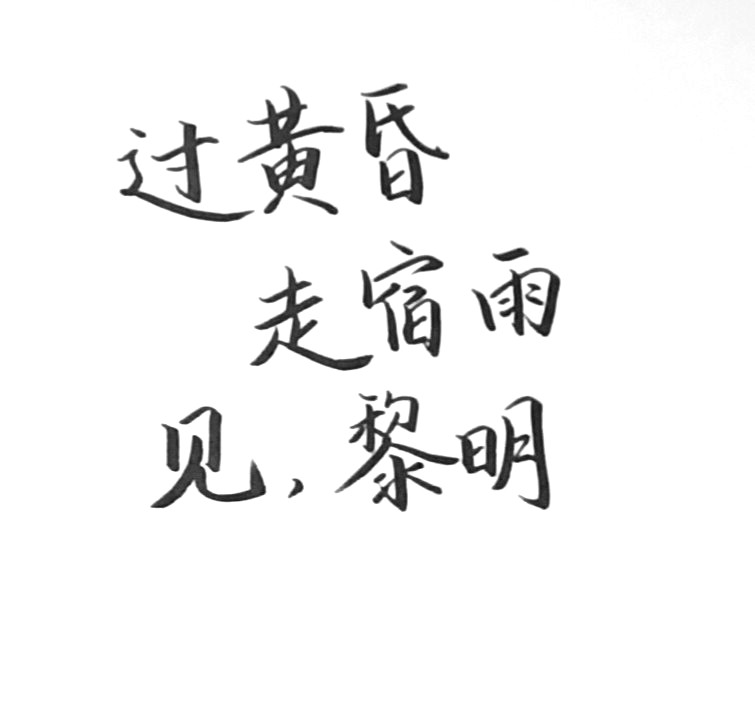 过黄昏
走宿雨
见，黎明